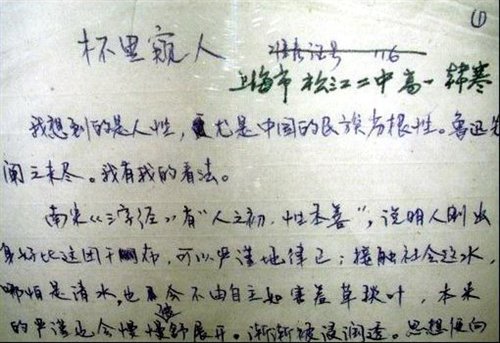 ①
杯里窥人
准考证号 116
上海市松江二中高一 韩寒
我想到的是人性，尤是中国的民族劣根性。鲁迅先
阐之未尽。我有我的看法。
南宋《三字经》有“人之初，性本善”，说明人刚出
身好比这团干布，可以严谨地律己；接触社会这水，
哪怕是清水，也会不由自主如害羞草叶，本来
的严谨也会慢慢被舒展开。渐渐被浸润透。思想便向